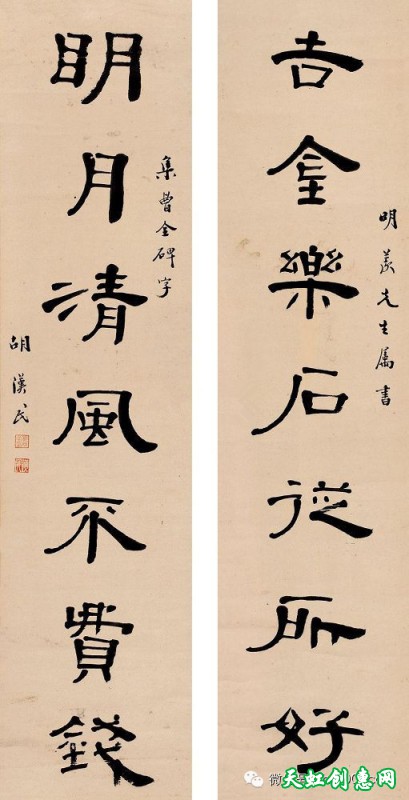 明 先生属書
吉金樂石從所好
集曹全碑字
明月清風不費錢
胡漢民
天虹创意网